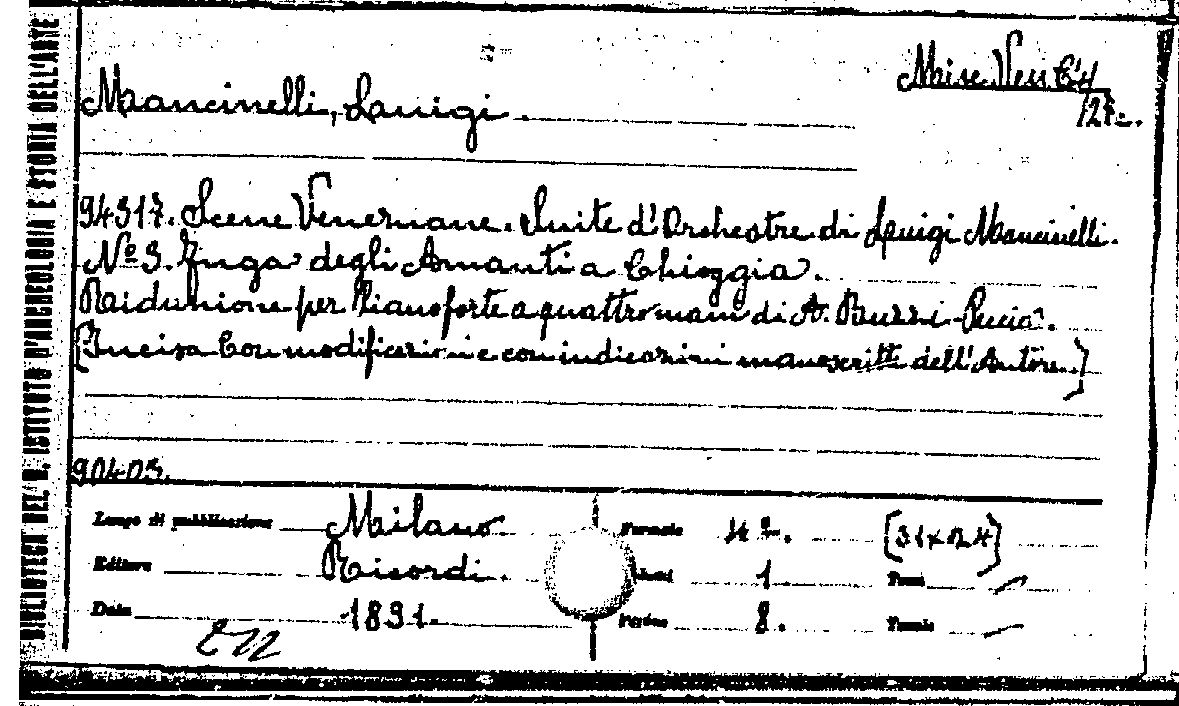 BIBLIOTECA DEL R. ISTITUTO D'ARCHEOLOGIA E STORIA DELL'ARTE
Mancinelli, Luigi.
94317. Scene Veneziane. Suite d'Orchestre di Luigi Mancinelli.
Nº 3. Fuga degli Amanti a Chioggia.
Riduzione per Pianoforte a quattro mani di A. Buzzi-Peccia.
[Incisa Con modificazioni e con indicazioni manoscritte dell'Autore.]
90403.
Luogo di pubblicazione Milano Formato 4º. [31x24]
Editore Ricordi. 1 Tomi
Data 1891. Pagine 8. Tavole